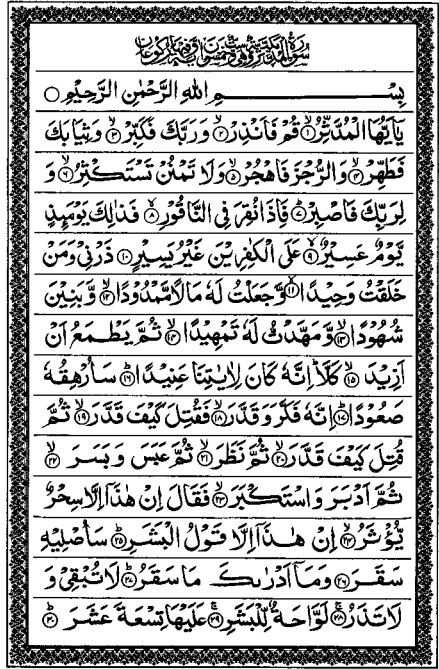 سورة المدثر مكية وهي ست وخمسون آية وفيها ركوعان
بِسْمِ اللهِ الرَّحْمٰنِ الرَّحِيْمِ ○
يٰۤاَيُّهَا الْمُدَّثِّرُ ۙ﴿۱﴾ قُمْ فَاَنْذِرْ ۙ﴿۲﴾ وَرَبَّكَ فَكَبِّرْ ۙ﴿۳﴾ وَثِيَابَكَ
فَطَهِّرْ ۙ﴿۴﴾ وَالرُّجْزَ فَاهْجُرْ ۙ﴿۵﴾ وَلَا تَمْنُنْ تَسْتَكْثِرُ ۙ﴿۶﴾ وَ
لِرَبِّكَ فَاصْبِرْ ؕ﴿۷﴾ فَاِذَا نُقِرَ فِى النَّاقُوْرِ ۙ﴿۸﴾ فَذٰلِكَ يَوْمَئِذٍ
يَّوْمٌ عَسِيْرٌ ۙ﴿۹﴾ عَلَى الْكٰفِرِيْنَ غَيْرُ يَسِيْرٍ ﴿۱۰﴾ ذَرْنِىْ وَمَنْ
خَلَقْتُ وَحِيْدًا ۙ﴿۱۱﴾ وَّجَعَلْتُ لَهٗ مَالًا مَّمْدُوْدًا ۙ﴿۱۲﴾ وَّبَنِيْنَ
شُهُوْدًا ۙ﴿۱۳﴾ وَّمَهَّدْتُّ لَهٗ تَمْهِيْدًا ۙ﴿۱۴﴾ ثُمَّ يَطْمَعُ اَنْ
اَزِيْدَ ۙ﴿۱۵﴾ كَلَّا ؕ اِنَّهٗ كَانَ لِاٰيٰتِنَا عَنِيْدًا ؕ﴿۱۶﴾ سَاُرْهِقُهٗ
صَعُوْدًا ؕ﴿۱۷﴾ اِنَّهٗ فَكَّرَ وَقَدَّرَ ۙ﴿۱۸﴾ فَقُتِلَ كَيْفَ قَدَّرَ ۙ﴿۱۹﴾ ثُمَّ
قُتِلَ كَيْفَ قَدَّرَ ۙ﴿۲۰﴾ ثُمَّ نَظَرَ ۙ﴿۲۱﴾ ثُمَّ عَبَسَ وَبَسَرَ ۙ﴿۲۲﴾
ثُمَّ اَدْبَرَ وَاسْتَكْبَرَ ۙ﴿۲۳﴾ فَقَالَ اِنْ هٰذَاۤ اِلَّا سِحْرٌ
يُّؤْثَرُ ۙ﴿۲۴﴾ اِنْ هٰذَاۤ اِلَّا قَوْلُ الْبَشَرِ ؕ﴿۲۵﴾ سَاُصْلِيْهِ
سَقَرَ ﴿۲۶﴾ وَمَاۤ اَدْرٰىكَ مَا سَقَرُ ؕ﴿۲۷﴾ لَا تُبْقِىْ وَ
لَا تَذَرُ ۚ﴿۲۸﴾ لَوَّاحَةٌ لِّلْبَشَرِ ۚ﴿۲۹﴾ عَلَيْهَا تِسْعَةَ عَشَرَ ؕ﴿۳۰﴾